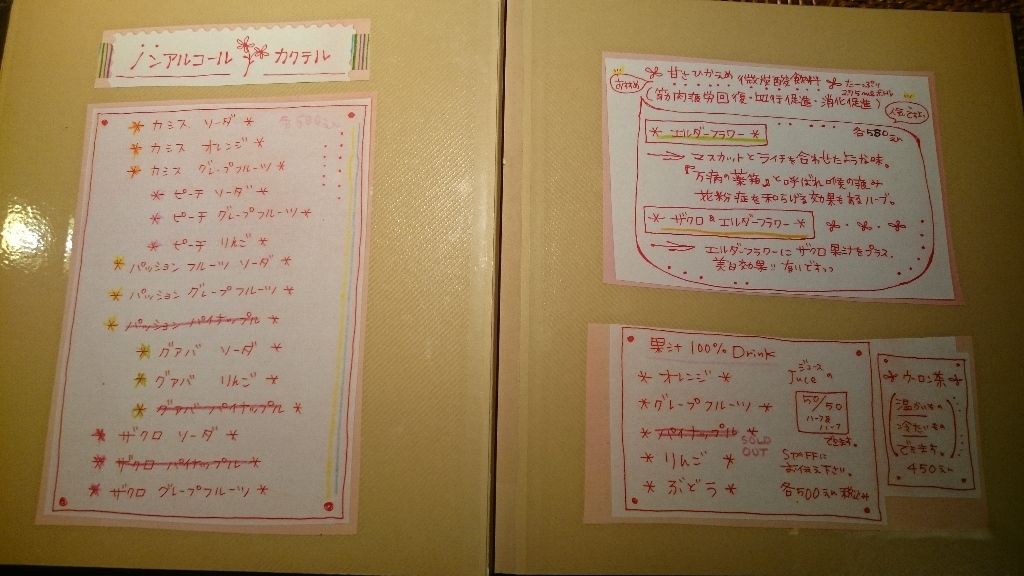 ノンアルコール カクテル
各580えん
* カシス ソーダ *
* カシス オレンジ *
* カシス グレープフルーツ *
* ピーチ ソーダ *
* ピーチ グレープフルーツ *
* ピーチ りんご *
* パッションフルーツ ソーダ *
* パッション グレープフルーツ *
* パッション パイナップル *
* グアバ ソーダ *
* グアバ りんご *
* グアバ パイナップル *
* ザクロ ソーダ *
* ザクロ パイナップル *
* ザクロ グレープフルーツ *
おすすめ
甘さひかえめ 微炭酸飲料
たーっぷり
275mlボトル
(筋肉疲労回復・血行促進・消化促進)
各580えん
* エルダーフラワー *
→ マスカットとライチを合わせたような味。
『万病の薬箱』と呼ばれ喉の痛み
花粉症を和らげる効果も有るハーブ。
* ザクロ & エルダーフラワー *
→ エルダーフラワーにザクロ果汁をプラス。
美白効果!! 有いです
果汁100% Drink
* オレンジ *
* グレープフルーツ *
* パイナップル *
SOLD OUT
* りんご *
* ぶどう *
ジュース
Juceの
50/50
ハーフ&ハーフ
できます。
STAFFに
お伝え下さい。
各500えん 税込み
* ウーロン茶 *
温かいもの
冷たいもの
できます。
450えん